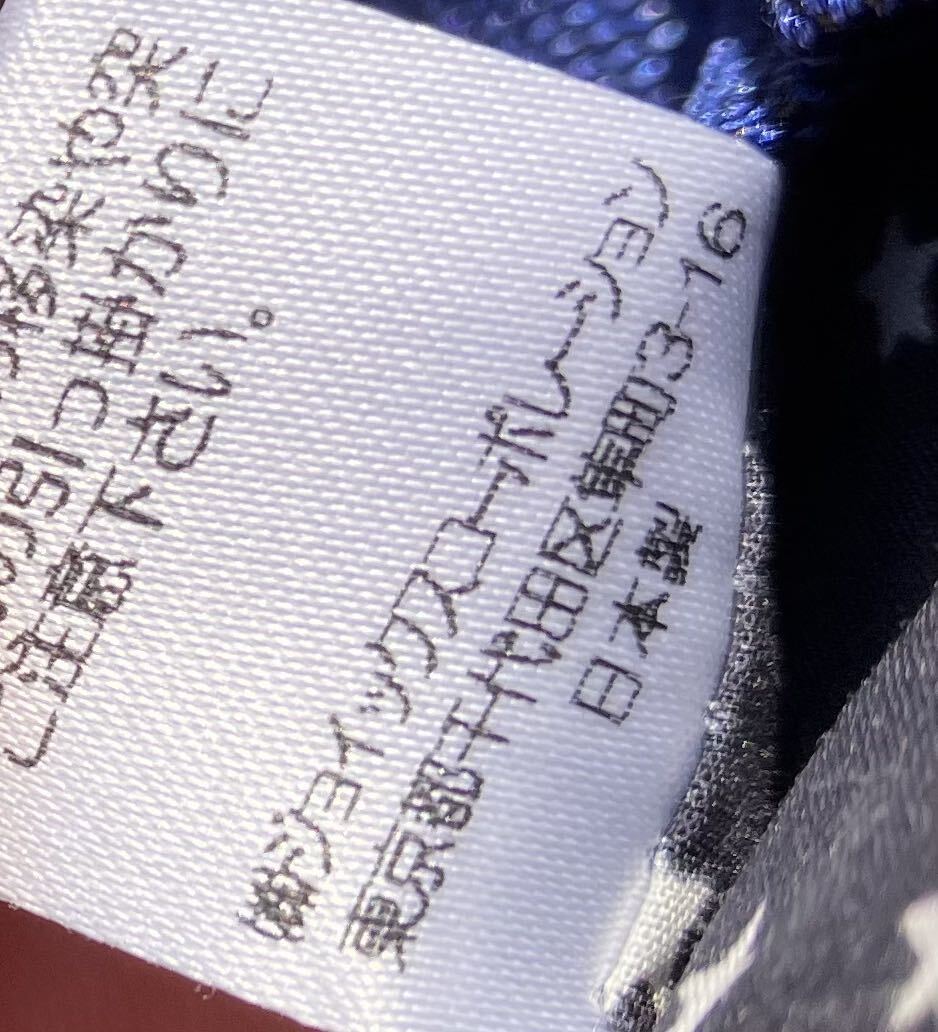 移染や突
の引っ掛かりに
ご注意下さい。
㈱ジョイックスコーポレーション
東京都千代田区隼町3-16
日本製